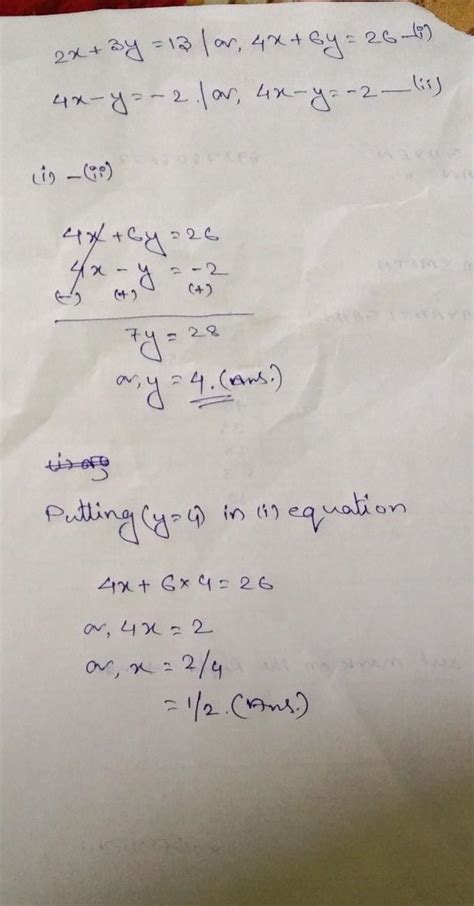 2x+3y=13/or, 4x+6y=26—(i)
4x-y=-2./or, 4x-y=-2—(ii)
(i) -(ii)
4x+6y=26
4x-y=-2
(-) (+) (+)
7y=28
or, y=4.(Ans.)
Putting (y=4) in (i) equation
4x+6×4=26
or, 4x=2
or, x=2/4
=1/2.(Ans.)